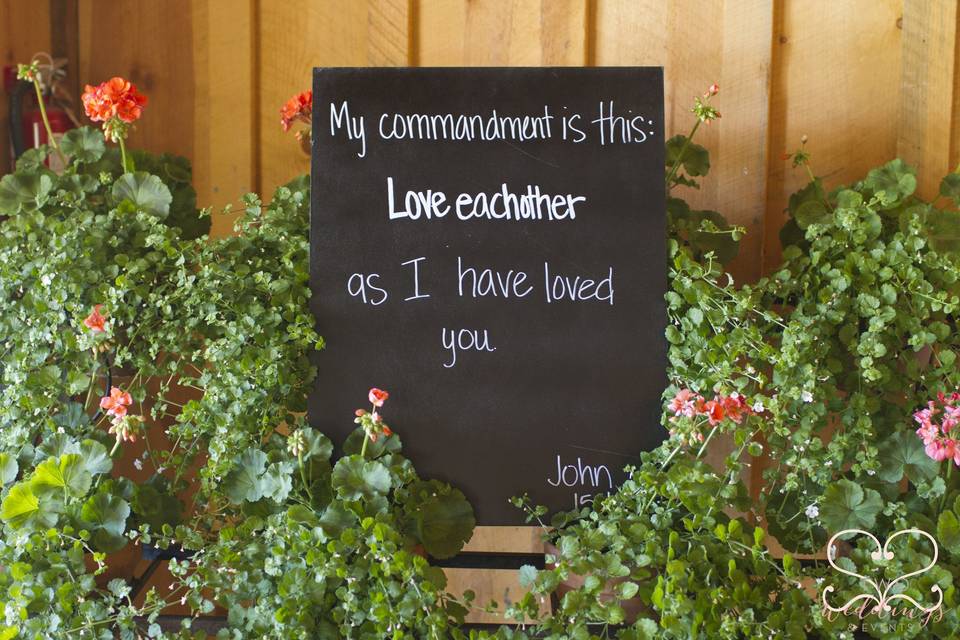 My commandment is this:
Love eachother
as I have loved
you.
John
weddings
& EVENTS